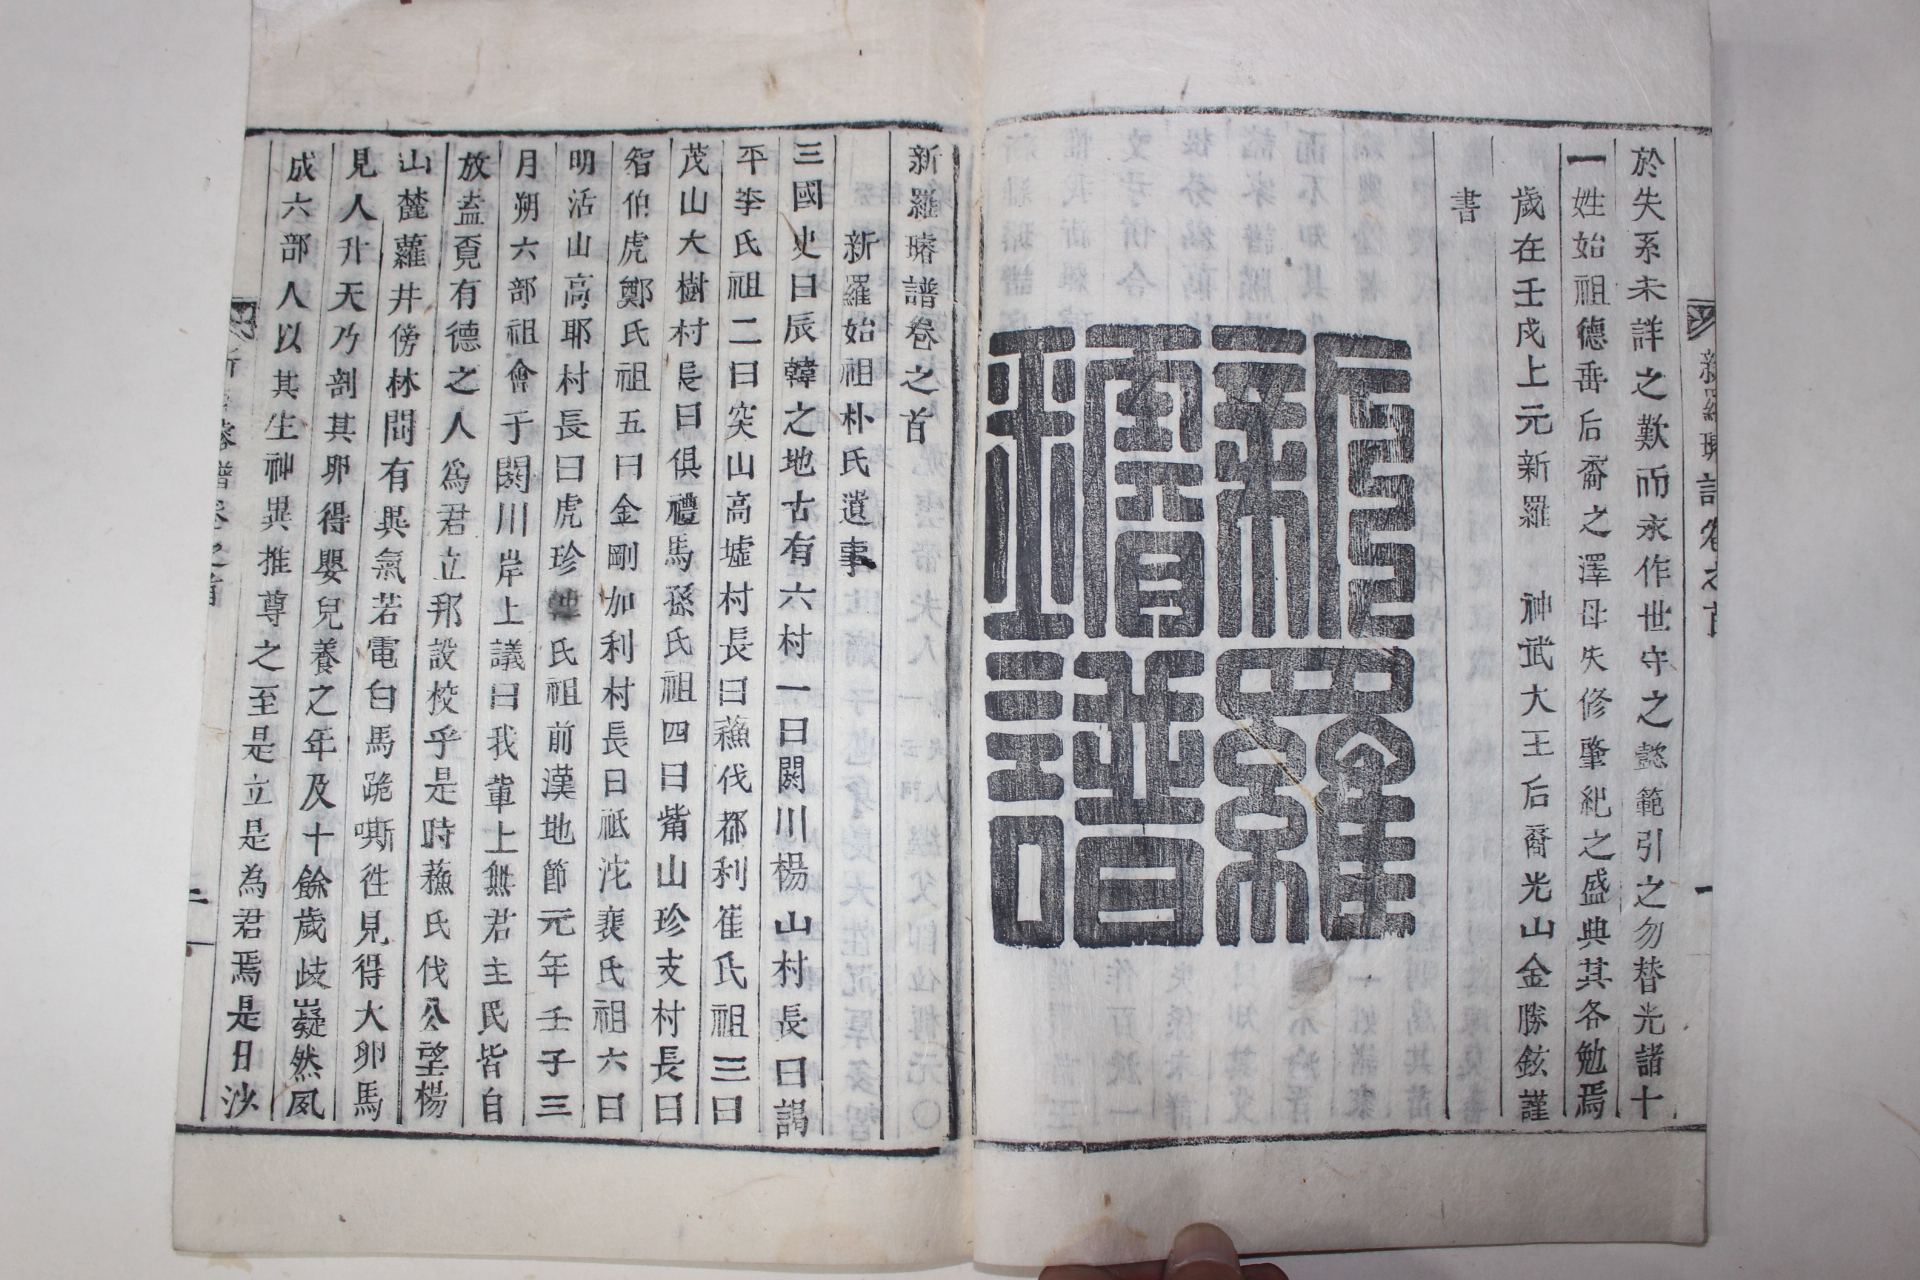 於失系未詳之歎而永作世守之懿範引之勿替光諸十
一姓始祖德垂后裔之澤毋失修肇紀之盛典其各勉焉
歲在壬戌上元新羅 神武大王后裔光山金勝鉉謹
書
新羅璿譜
新羅璿譜卷之首
新羅始祖朴氏遺事
三國史曰辰韓之地古有六村一曰閼川楊山村長曰謁
平李氏祖二曰突山高墟村長曰蘓伐都利崔氏祖三曰
茂山大樹村長曰俱禮馬孫氏祖四曰觜山珍支村長曰
智伯虎鄭氏祖五曰金剛加利村長曰祗沱裵氏祖六曰
明活山高耶村長曰虎珍 氏祖前漢地節元年壬子三
月朔六部祖會于閼川岸上議曰我輩上無君主民皆自
放盖覔有德之人爲君立邦設校乎是時蘓氏伐公望楊
山麓蘿井傍林間有異氣若電白馬跪嘶徃見得大卵馬
見人升天乃剖其卵得嬰兒養之年及十餘歲歧嶷然夙
成六部人以其生神異推尊之至是立是為君焉是日沙